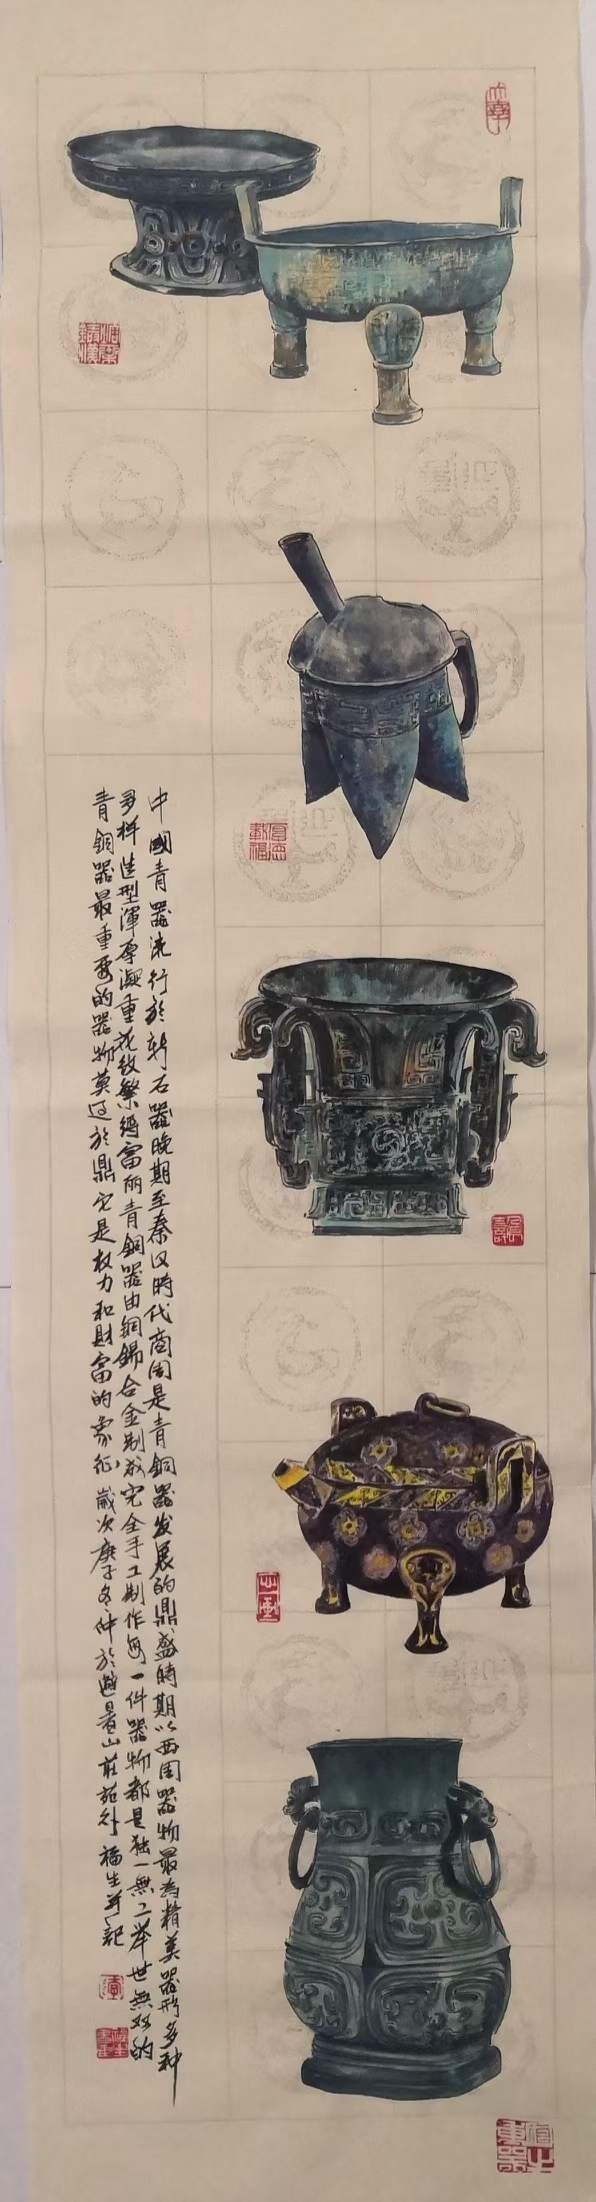 中國青器流行於新石器晚期至秦汉時代商周是青銅器发展的鼎盛時期以西周器物最為精美器形多种
多样造型渾厚凝重花纹繁縟富丽青銅器由銅錫合金制成完全手工制作每一件器物都是独一無二举世無双的
青銅器最重要的器物莫过於鼎它是权力和財富的象征歲次庚子冬仲於避暑山莊苑外福生并記